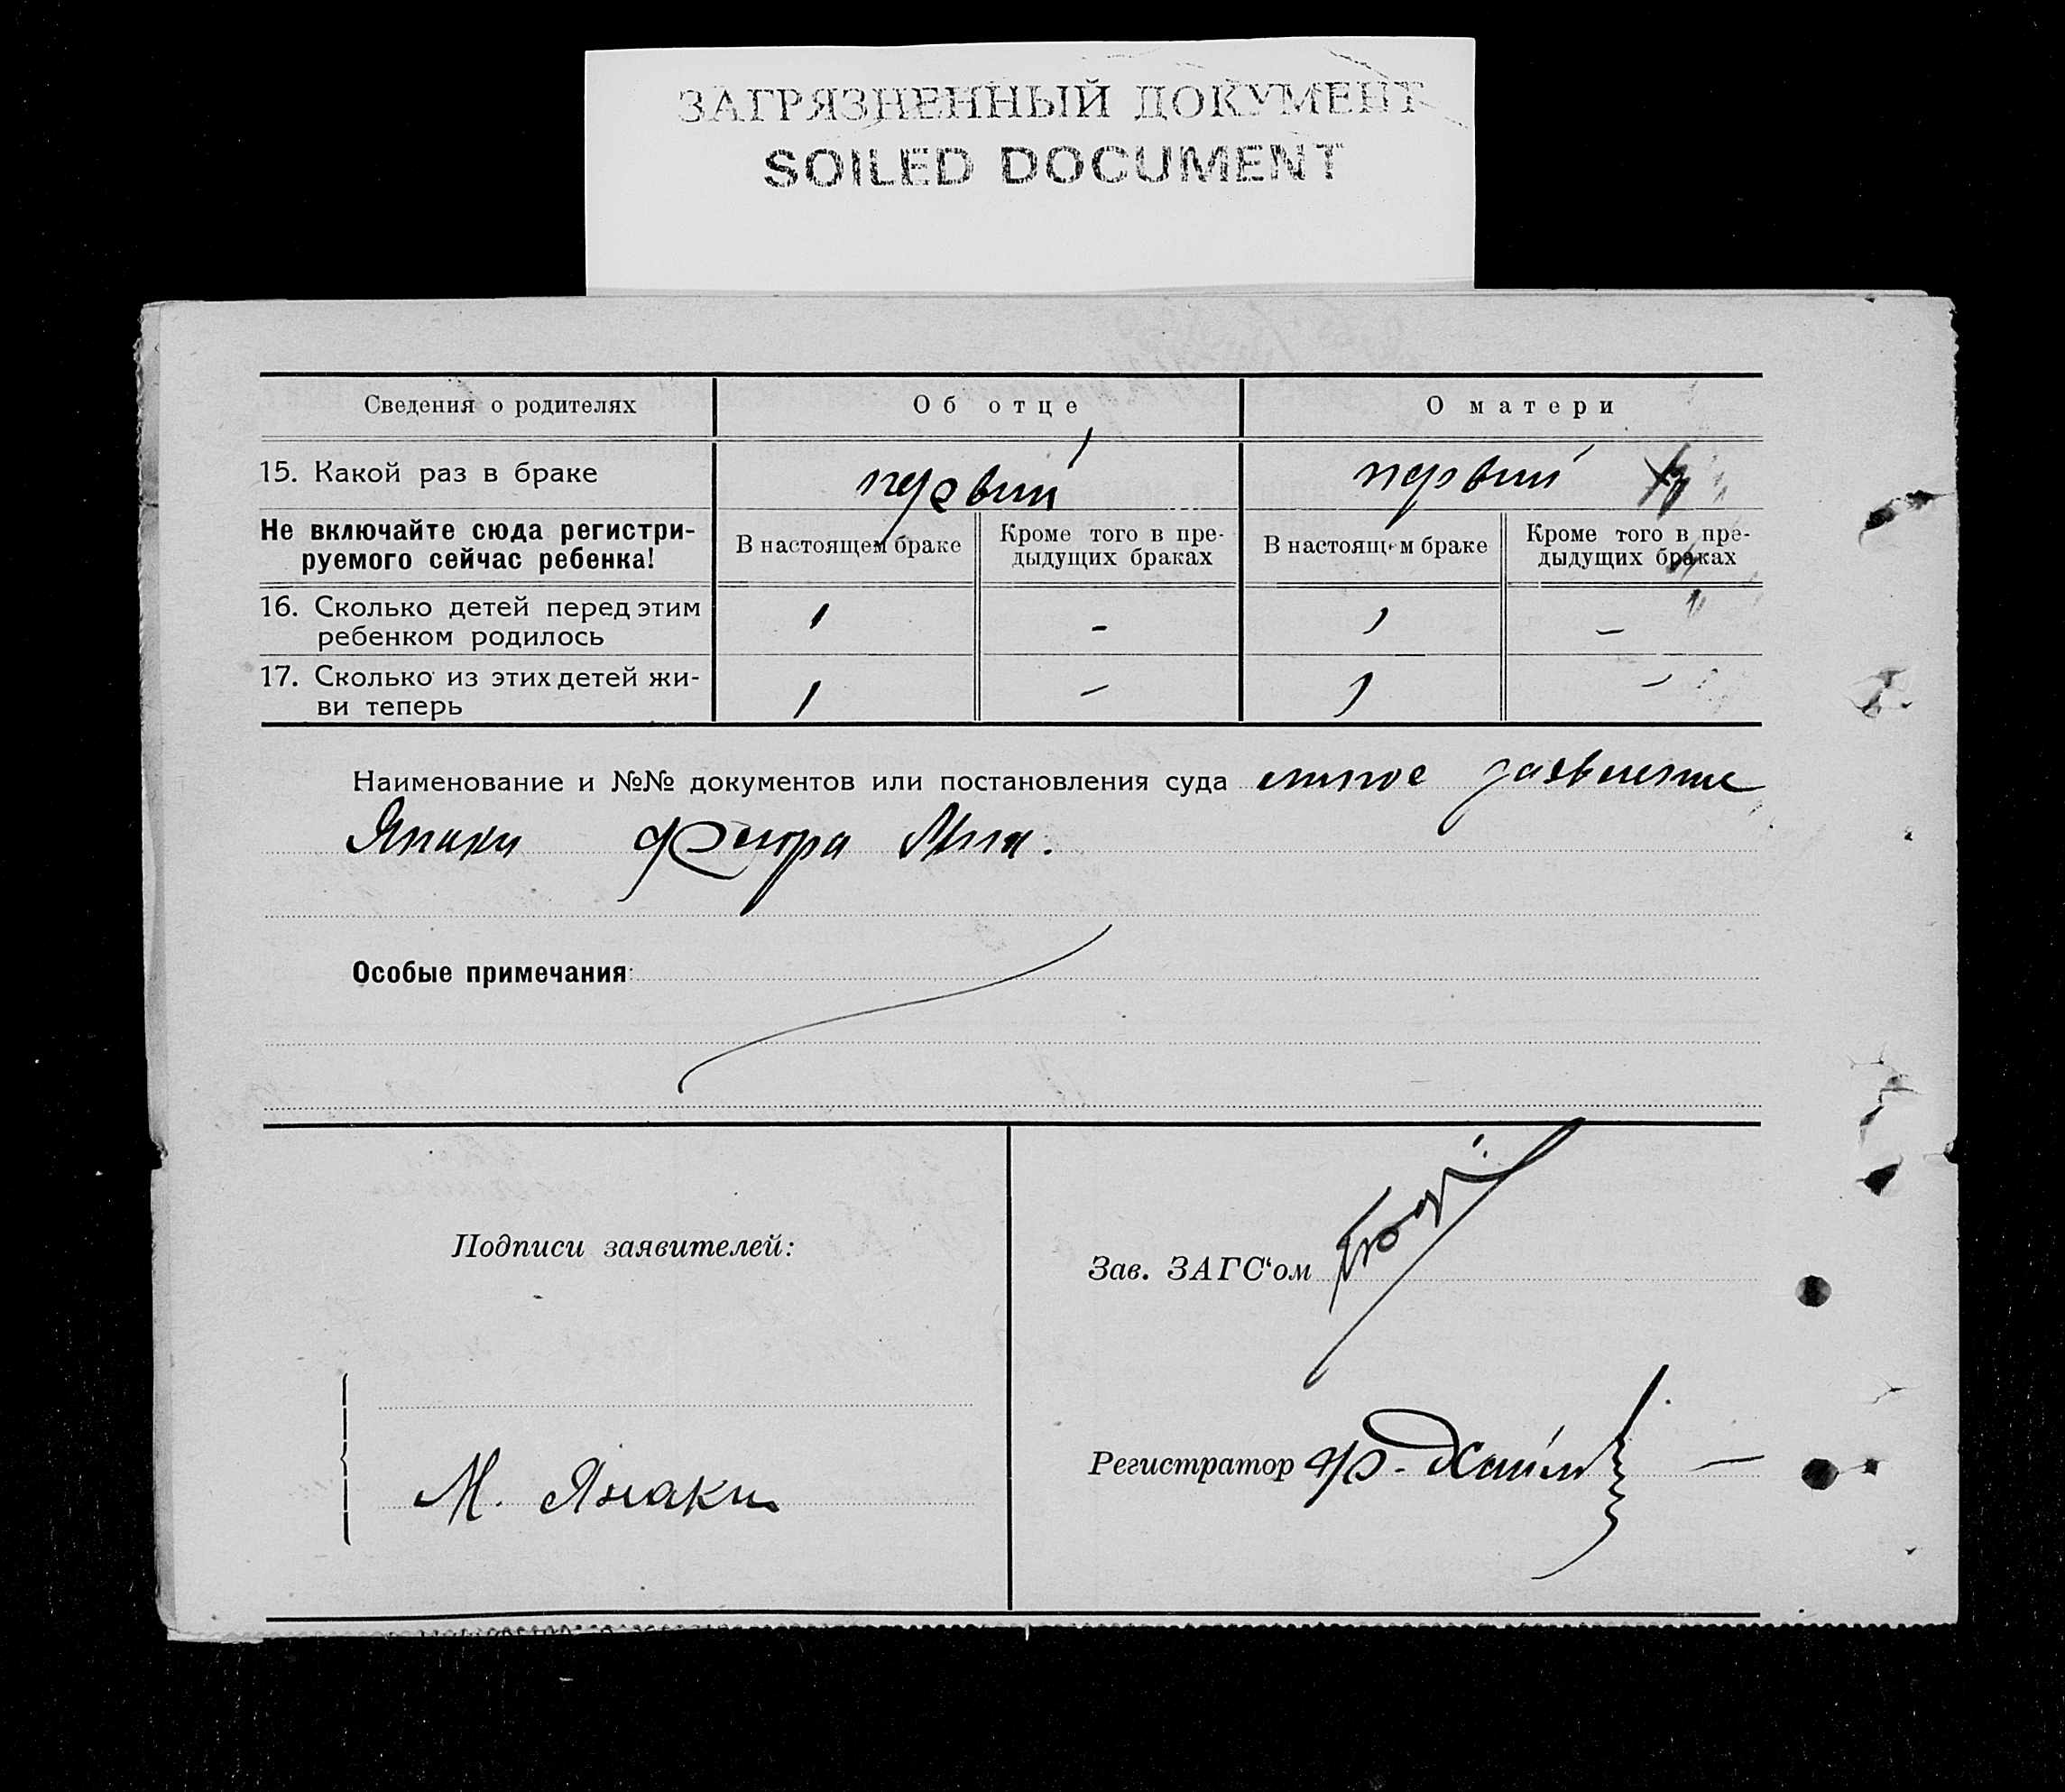 ЗАГРЯЗНЕННЫЙ ДОКУМЕНТ
SOILED DOCUMENT
Сведения о родителях Об отце О матери
15. Какой раз в браке первый первый
Не включайте сюда регистри-
руемого сейчас ребенка!
В настоящем браке
Кроме того в пре-
дыдущих браках
В настоящем браке
Кроме того в пре-
дыдущих браках
16. Сколько детей перед этим
ребенком родилось
1 - 1 -
17. Сколько из этих детей жи-
ви теперь
1 - 1 -
Наименование и №№ документов или постановления суда личное заявление
Янаки
Особые примечания:
Подписи заявителей:
М. Янаки
Зав. ЗАГС'ом
Регистратор